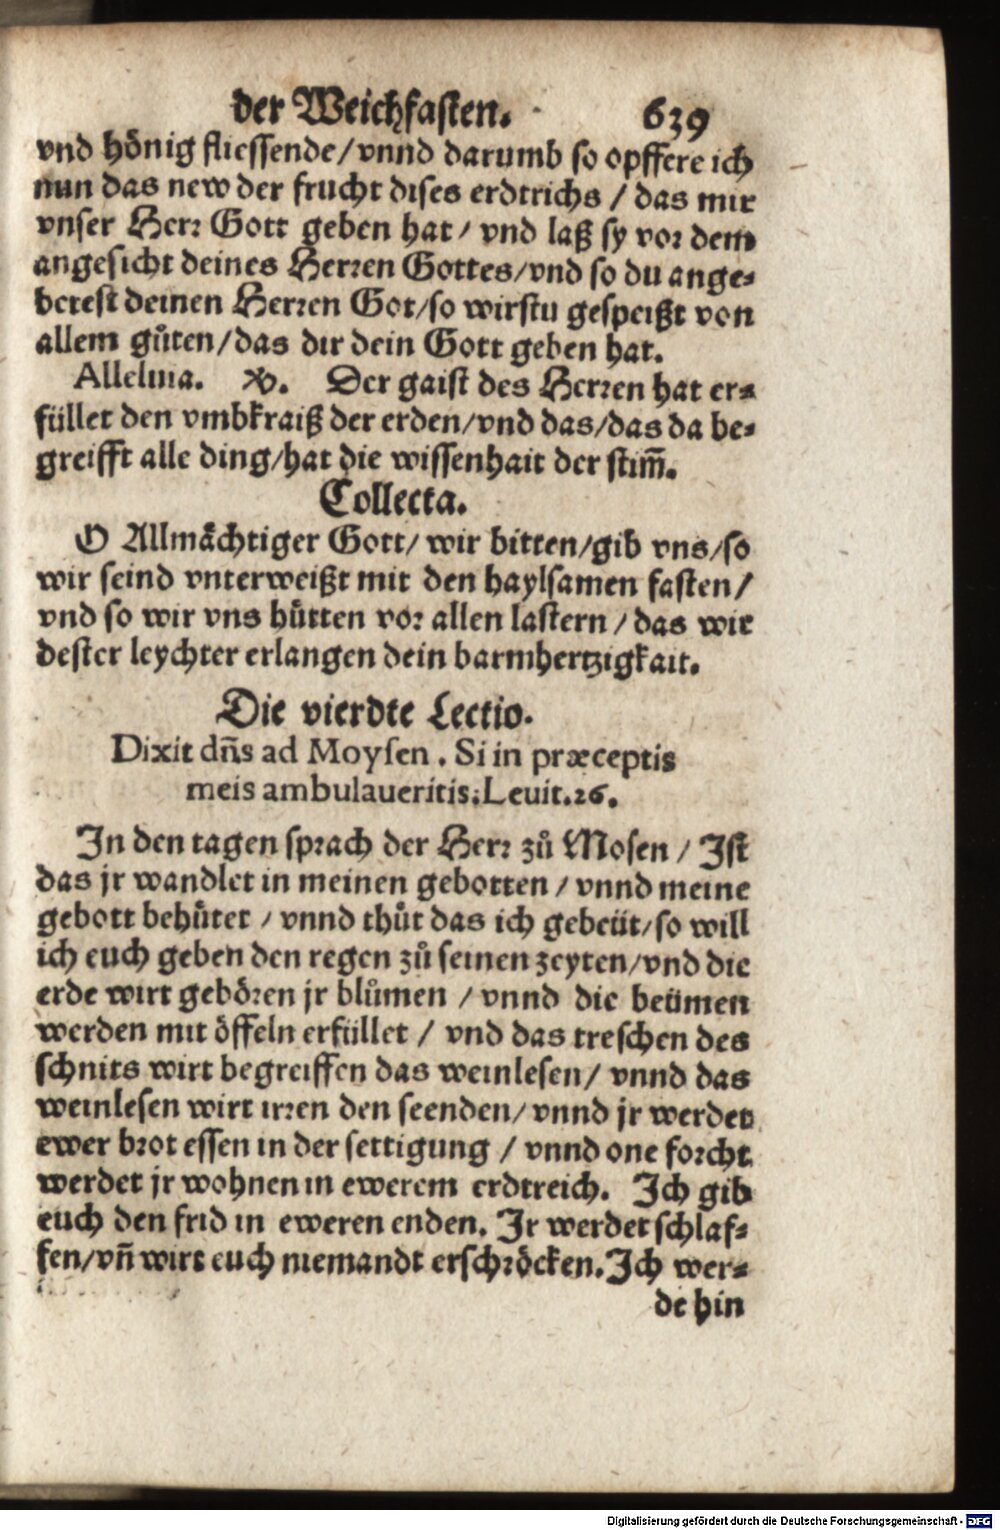 der Weichfasten. 639
vnd hönig fliessende/vnnd darumb so opffere ich
nun das new der frucht dises erdtrichs / das mir
vnser Herr Gott geben hat / vnd laß sy vor dem
angesicht deines Herren Gottes/vnd so du ange⸗
betest deinen Herren Got/so wirstu gespeißt von
allem gůten/das dir dein Gott geben hat.
Alleluia. ℣. Der gaist des Herren hat er⸗
füllet den vmbkraiß der erden/vnd das/das da be⸗
greifft alle ding/hat die wissenhait der stim̄.
Collecta.
O Allmächtiger Gott/ wir bitten/gib vns/so
wir seind vnterweißt mit den haylsamen fasten/
vnd so wir vns hůtten vor allen lastern / das wir
dester leychter erlangen dein barmhertzigkait.
Die vierdte Lectio.
Dixit dn̄s ad Moysen. Si in præceptis
meis ambulaueritis; Leuit.26.
In den tagen sprach der Herr zů Mosen / Ist
das jr wandlet in meinen gebotten / vnnd meine
gebott behůtet / vnnd thůt das ich gebeüt/so will
ich euch geben den regen zů seinen zeyten/vnd die
erde wirt gebören jr blůmen / vnnd die beümen
werden mit öffeln erfüllet / vnd das treschen des
schnits wirt begreiffen das weinlesen/ vnnd das
weinlesen wirt irren den seenden/vnnd jr werdet
ewer brot essen in der settigung / vnnd one forcht
werdet jr wohnen in ewerem erdtreich. Ich gib
euch den frid in eweren enden. Jr werdet schlaf⸗
fen/vn̄ wirt euch niemandt erschröcken. Ich wer⸗
de hin
Digitalisierung gefördert durch die Deutsche Forschungsgemeinschaft - DFG